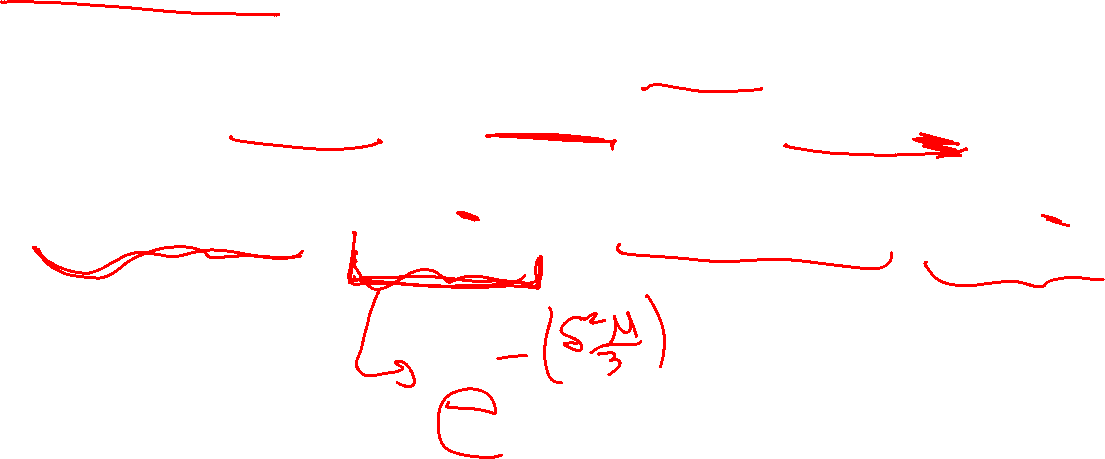 e^{-(\frac{δ^2 μ}{3})}